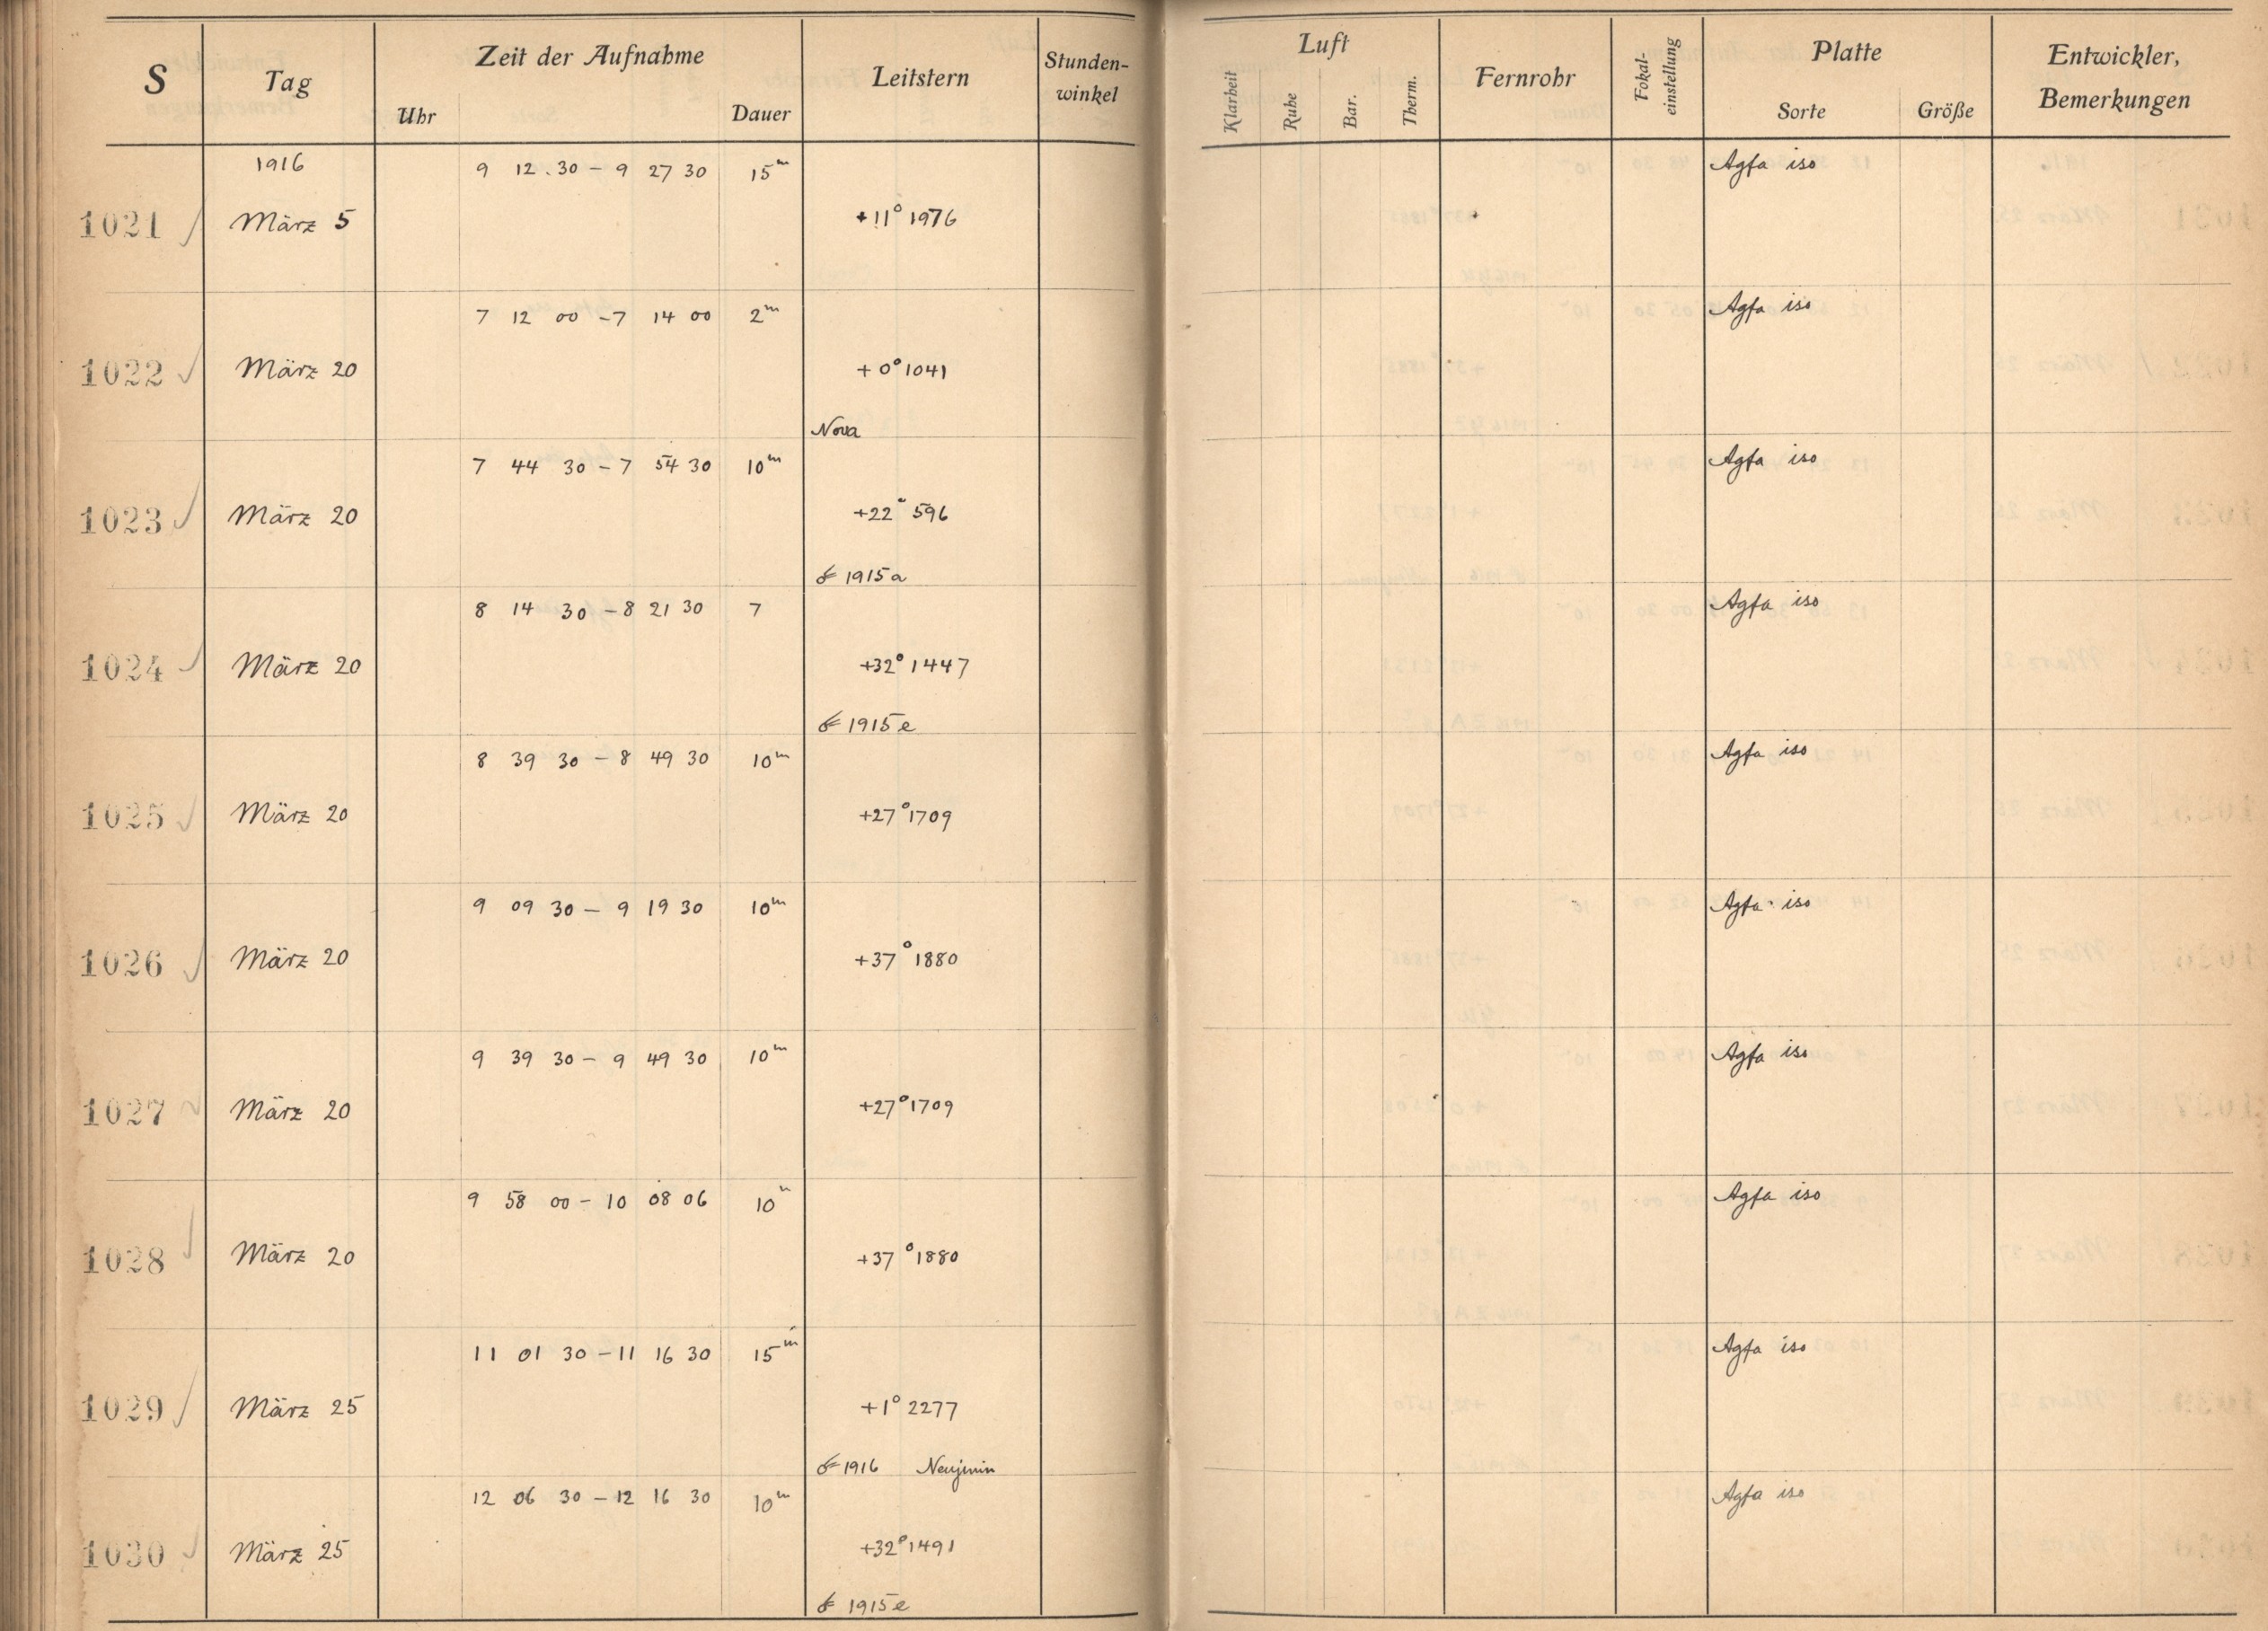 S Tag Zeit der Aufnahme Leitstern Stunden-winkel Luft Fernrohr Fokal-einstellung Platte Entwickler, Bemerkungen
Uhr Dauer Klarheit Ruhe Bar. Therm. Sorte Größe
1916 9 12 . 30 – 9 27 30 15m Agfa iso
1021 März 5 +11° 1976
7 12 00 – 7 14 00 2m Agfa iso
1022 März 20 +0° 1041
Nova
7 44 30 – 7 54 30 10m Agfa iso
1023 März 20 +22° 596
☄ 1915a
8 14 30 – 8 21 30 7 Agfa iso
1024 März 20 +32° 1447
☄ 1915e
8 39 30 – 8 49 30 10m Agfa iso
1025 März 20 +27° 1709
9 09 30 – 9 19 30 10m Agfa iso
1026 März 20 +37° 1880
9 39 30 – 9 49 30 10m Agfa iso
1027 März 20 +27° 1709
9 58 00 – 10 08 06 10m Agfa iso
1028 März 20 +37° 1880
11 01 30 – 11 16 30 15m Agfa iso
1029 März 25 +1° 2277
☄ 1916 Neujmin
12 06 30 – 12 16 30 10m Agfa iso
1030 März 25 +32° 1491
☄ 1915e